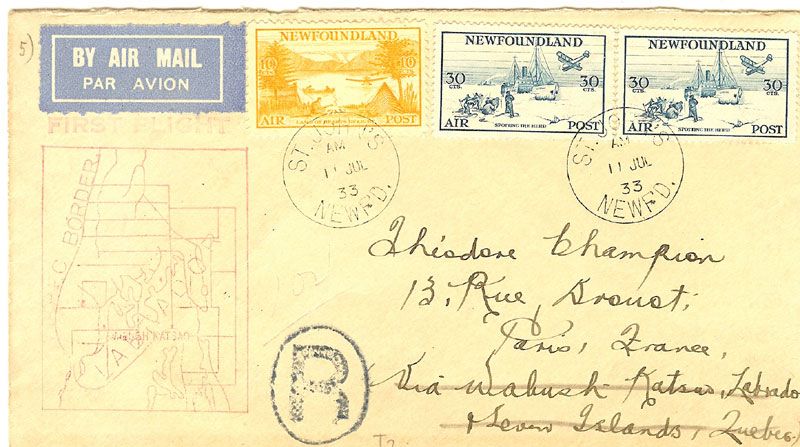 5)
BY AIR MAIL
PAR AVION
FIRST FLIGHT
NEWFOUNDLAND
10 CTS.
10 CTS.
LAND OF HEART'S DELIGHT
AIR POST
NEWFOUNDLAND
30 CTS.
30 CTS.
SPOTTING THE HERD
AIR POST
NEWFOUNDLAND
30 CTS.
30 CTS.
SPOTTING THE HERD
AIR POST
ST. JOHN'S
AM
11 JUL
33
NEWF'D.
ST. JOHN'S
AM
11 JUL
33
NEWF'D.
BORDER
R
Théodore Champion
13, Rue Drouot,
Paris, France,
Via Wabush Katsao, Labrado
& Seven Islands, Quebec